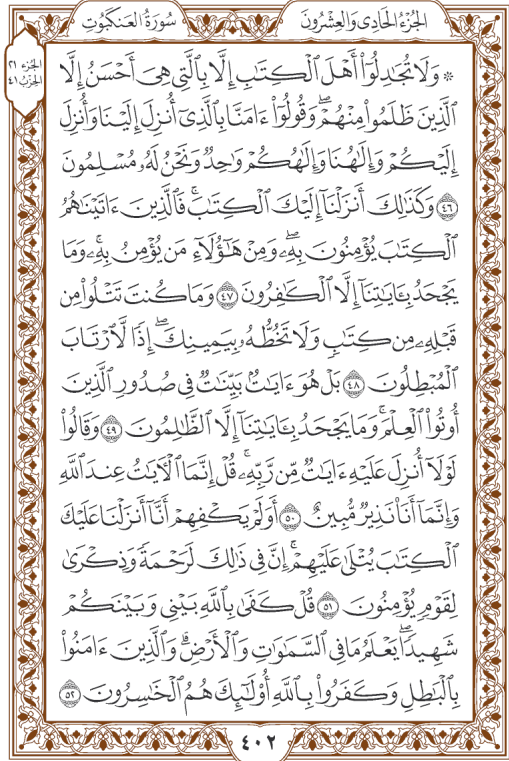 الجُزْءُ الحَادِي وَالعِشْرُونَ
سُورَةُ العَنكَبُوتِ
الجزء ٢١
الحزب ٤١
۞ وَلَا تُجَٰدِلُوٓاْ أَهۡلَ ٱلۡكِتَٰبِ إِلَّا بِٱلَّتِي هِيَ أَحۡسَنُ إِلَّا
ٱلَّذِينَ ظَلَمُواْ مِنۡهُمۡۖ وَقُولُوٓاْ ءَامَنَّا بِٱلَّذِيٓ أُنزِلَ إِلَيۡنَا وَأُنزِلَ
إِلَيۡكُمۡ وَإِلَٰهُنَا وَإِلَٰهُكُمۡ وَٰحِدٞ وَنَحۡنُ لَهُۥ مُسۡلِمُونَ
٤٦ وَكَذَٰلِكَ أَنزَلۡنَآ إِلَيۡكَ ٱلۡكِتَٰبَۚ فَٱلَّذِينَ ءَاتَيۡنَٰهُمُ
ٱلۡكِتَٰبَ يُؤۡمِنُونَ بِهِۦۖ وَمِنۡ هَٰٓؤُلَآءِ مَن يُؤۡمِنُ بِهِۦۚ وَمَا
يَجۡحَدُ بِـَٔايَٰتِنَآ إِلَّا ٱلۡكَٰفِرُونَ ٤٧ وَمَا كُنتَ تَتۡلُواْ مِن
قَبۡلِهِۦ مِن كِتَٰبٖ وَلَا تَخُطُّهُۥ بِيَمِينِكَۖ إِذٗا لَّٱرۡتَابَ
ٱلۡمُبۡطِلُونَ ٤٨ بَلۡ هُوَ ءَايَٰتُۢ بَيِّنَٰتٞ فِي صُدُورِ ٱلَّذِينَ
أُوتُواْ ٱلۡعِلۡمَۚ وَمَا يَجۡحَدُ بِـَٔايَٰتِنَآ إِلَّا ٱلظَّٰلِمُونَ ٤٩ وَقَالُواْ
لَوۡلَآ أُنزِلَ عَلَيۡهِ ءَايَٰتٞ مِّن رَّبِّهِۦۚ قُلۡ إِنَّمَا ٱلۡأٓيَٰتُ عِندَ ٱللَّهِ
وَإِنَّمَآ أَنَا۠ نَذِيرٞ مُّبِينٌ ٥٠ أَوَلَمۡ يَكۡفِهِمۡ أَنَّآ أَنزَلۡنَا عَلَيۡكَ
ٱلۡكِتَٰبَ يُتۡلَىٰ عَلَيۡهِمۡۚ إِنَّ فِي ذَٰلِكَ لَرَحۡمَةٗ وَذِكۡرَىٰ
لِقَوۡمٖ يُؤۡمِنُونَ ٥١ قُلۡ كَفَىٰ بِٱللَّهِ بَيۡنِي وَبَيۡنَكُمۡ
شَهِيدٗاۖ يَعۡلَمُ مَا فِي ٱلسَّمَٰوَٰتِ وَٱلۡأَرۡضِۗ وَٱلَّذِينَ ءَامَنُواْ
بِٱلۡبَٰطِلِ وَكَفَرُواْ بِٱللَّهِ أُوْلَٰٓئِكَ هُمُ ٱلۡخَٰسِرُونَ ٥٢
٤٠٢